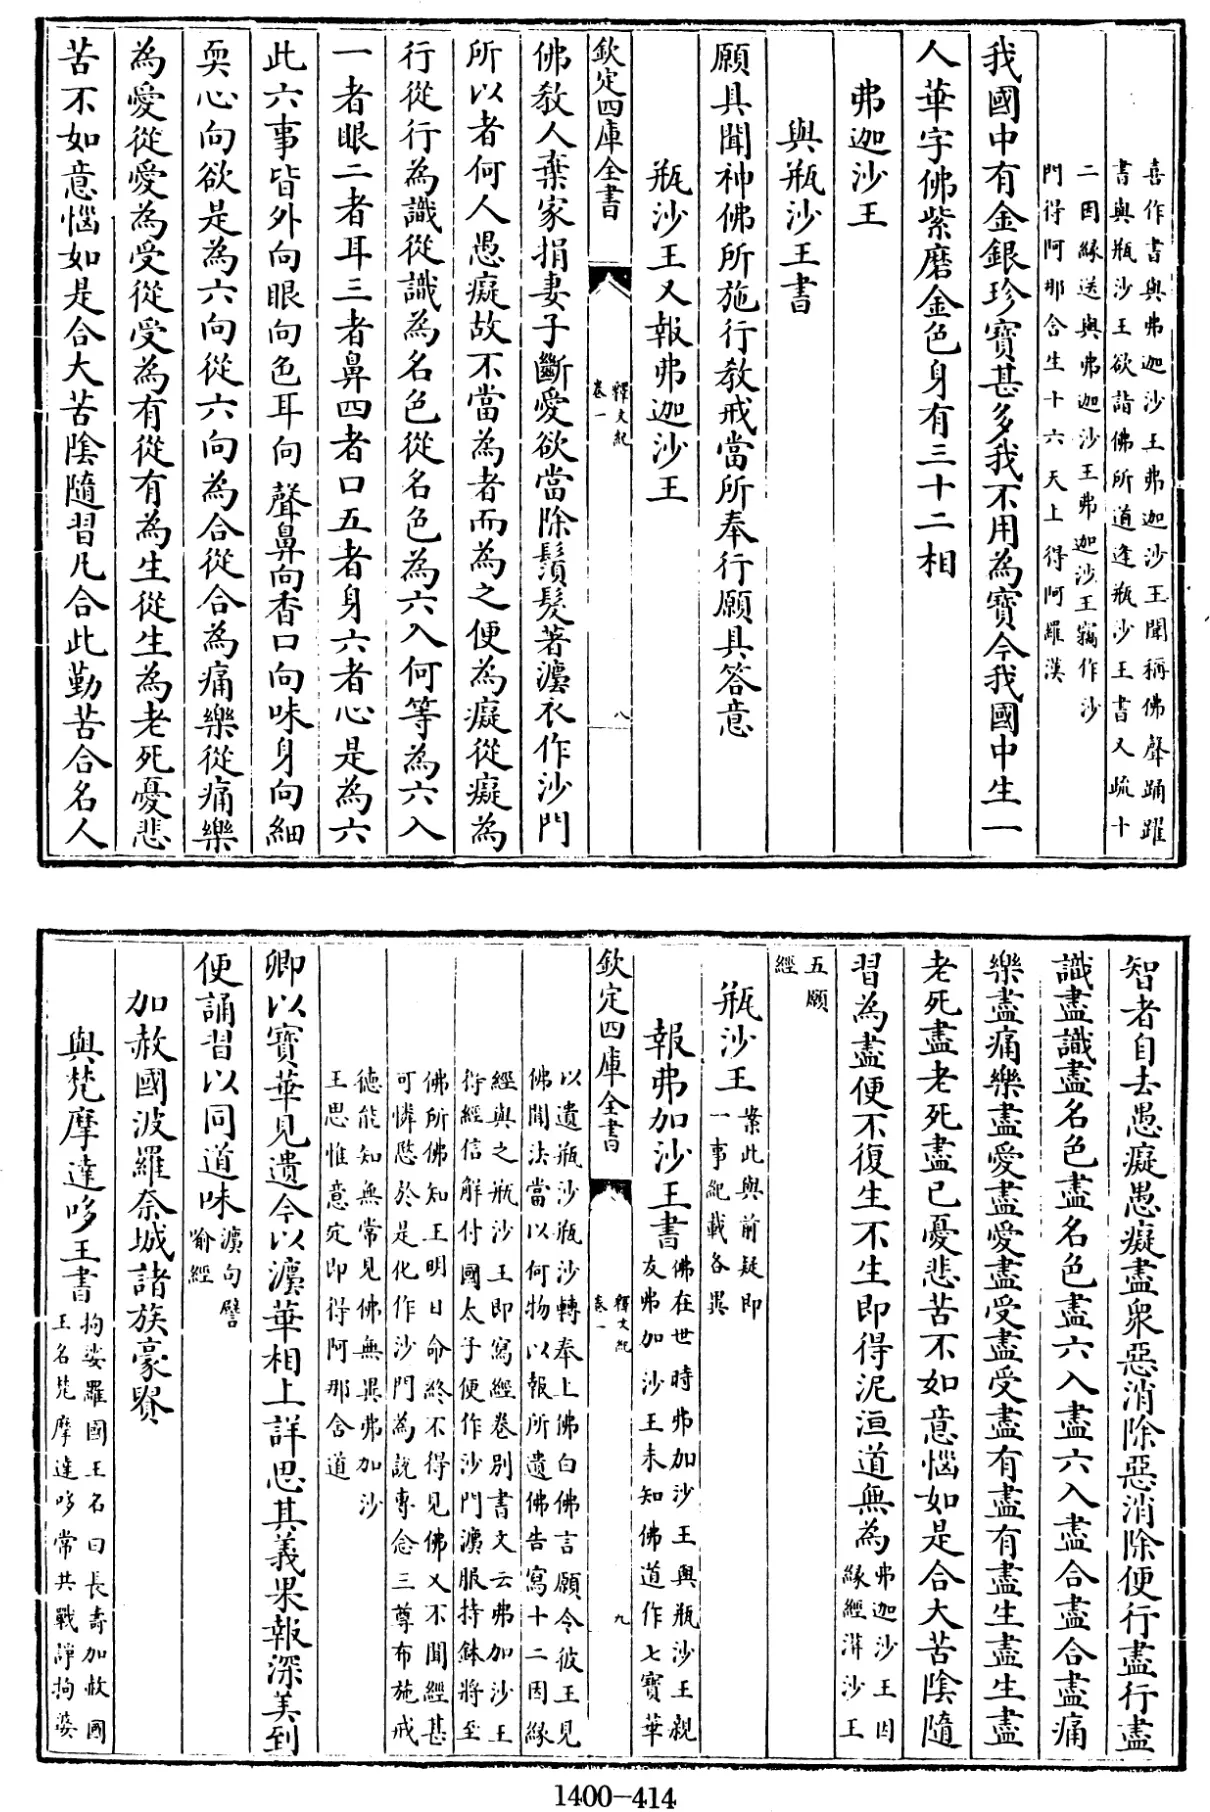 喜作書與弗迦沙王弗迦沙王聞稱佛聲踊躍
書與瓶沙王欲詣佛所道逢瓶沙王書又疏十
二因緣送與弗迦沙王弗迦沙王竊作沙
門得阿那含生十六天上得阿羅漢
我國中有金銀珍寶甚多我不用為寶今我國中生一
人華字佛紫磨金色身有三十二相
弗迦沙王
與瓶沙王書
願具聞神佛所施行敎戒當所奉行願具答意
瓶沙王又報弗迦沙王
欽定四庫全書
釋文紀
卷一
八
佛敎人棄家捐妻子斷愛欲當除鬚髮著灋衣作沙門
所以者何人愚癡故不當為者而為之便為癡從癡為
行從行為識從識為名色從名色為六入何等為六入
一者眼二者耳三者鼻四者口五者身六者心是為六
此六事皆外向眼向色耳向聲鼻向香口向味身向細
耎心向欲是為六向從六向為合從合為痛樂從痛樂
為愛從愛為受從受為有從有為生從生為老死憂悲
苦不如意惱如是合大苦陰隨習凡合此勤苦合名人
智者自去愚癡愚癡盡衆惡消除惡消除便行盡行盡
識盡識盡名色盡名色盡六入盡六入盡合盡合盡痛
樂盡痛樂盡愛盡愛盡受盡受盡有盡有盡生盡生盡
老死盡老死盡已憂悲苦不如意惱如是合大苦陰隨
習為盡便不復生不生即得泥洹道無為弗迦沙王因
緣經蓱沙王
五願
經
瓶沙王案此與前疑即
一事紀載各異
報弗加沙王書佛在世時弗加沙王與瓶沙王親
友弗加沙王未知佛道作七寶華
欽定四庫全書
釋文紀
卷一
九
以遺瓶沙瓶沙轉奉上佛白佛言願令彼王見
佛聞法當以何物以報所遺佛告寫十二因緣
經與之瓶沙王即寫經卷別書文云弗加沙王
得經信解付國太子便作沙門灋服持鉢將至
佛所佛知王明日命終不得見佛又不聞經甚
可憐愍於是化作沙門為說專念三尊布施戒
德能知無常見佛無異弗加沙
王思惟意定即得阿那含道
卿以寶華見遺今以灋華相上詳思其義果報深美到
便誦習以同道味灋句譬
喻經
加赦國波羅奈城諸族豪賢
與梵摩達哆王書拘娑羅國王名曰長壽加赦國
王名梵摩達哆常共戰諍拘婆